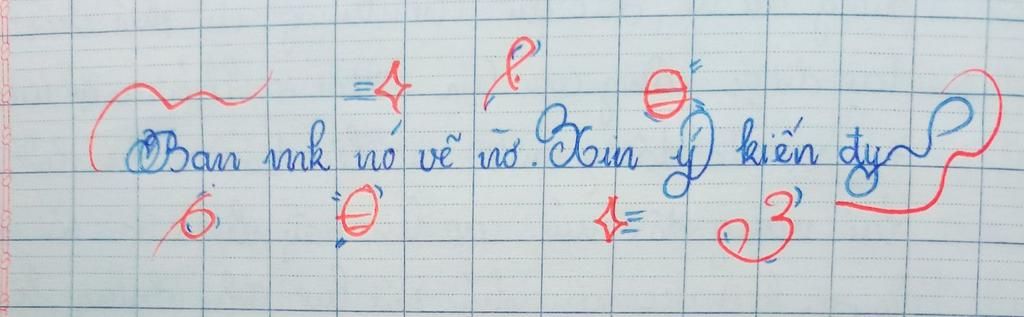 Bạn mk nó vẽ nè. Xin ý kiến đy